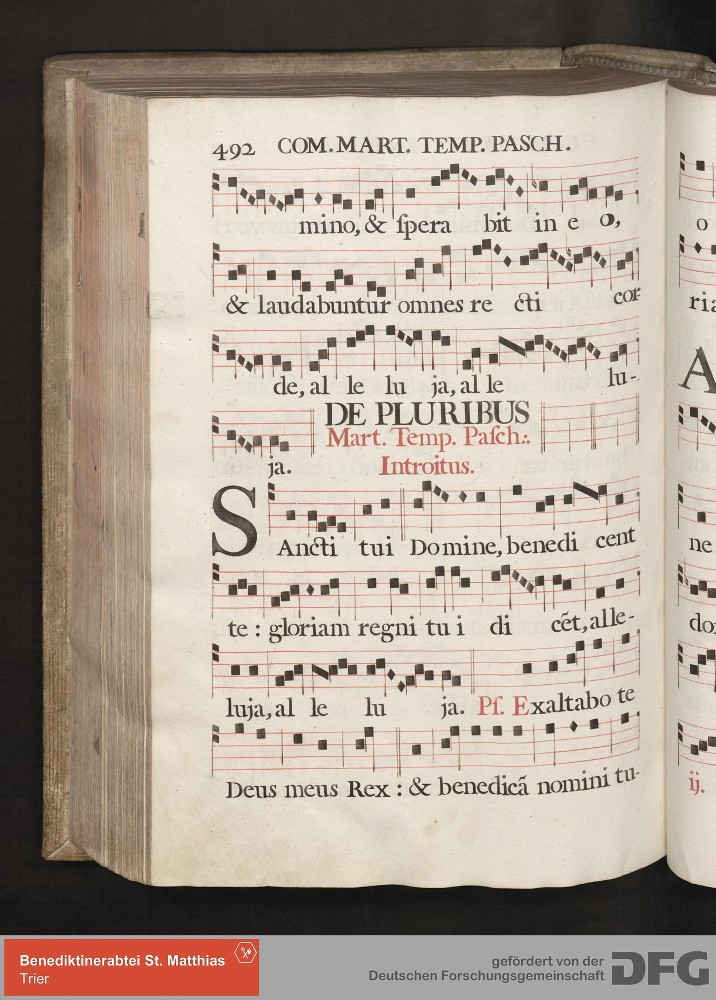 492 COM. MART. TEMP. PASCH.
mino, & ſpera bit in e o,
& laudabuntur omnes re cti cor-
de, al le lu ja, al le lu-
DE PLURIBUS
Mart. Temp. Paſch:.
ja. Introitus.
SAncti tui Domine, benedi cent
te : gloriam regni tu i di cēt, alle-
luja, al le lu ja. Pſ. Exaltabo te
Deus meus Rex : & benedicā nomini tu-
o
ria
A
ne
do
ij.
Benediktinerabtei St. Matthias
Trier
gefördert von der
Deutschen Forschungsgemeinschaft DFG